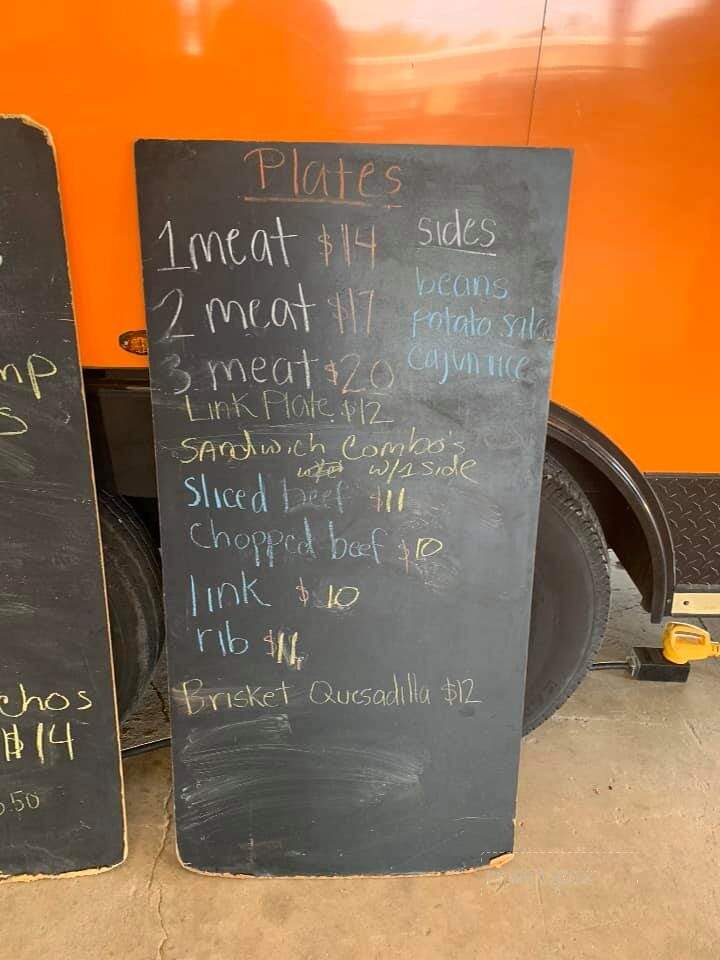 Plates
1 meat $14
2 meat $17
3 meat $20
Link Plate $12
sides
beans
potato sala
cajun rice
Sandwich Combo's
w/1 side
Sliced beef $11
Chopped beef $10
link $10
rib
Brisket Quesadilla $12
mp
s
chos
$14
.50